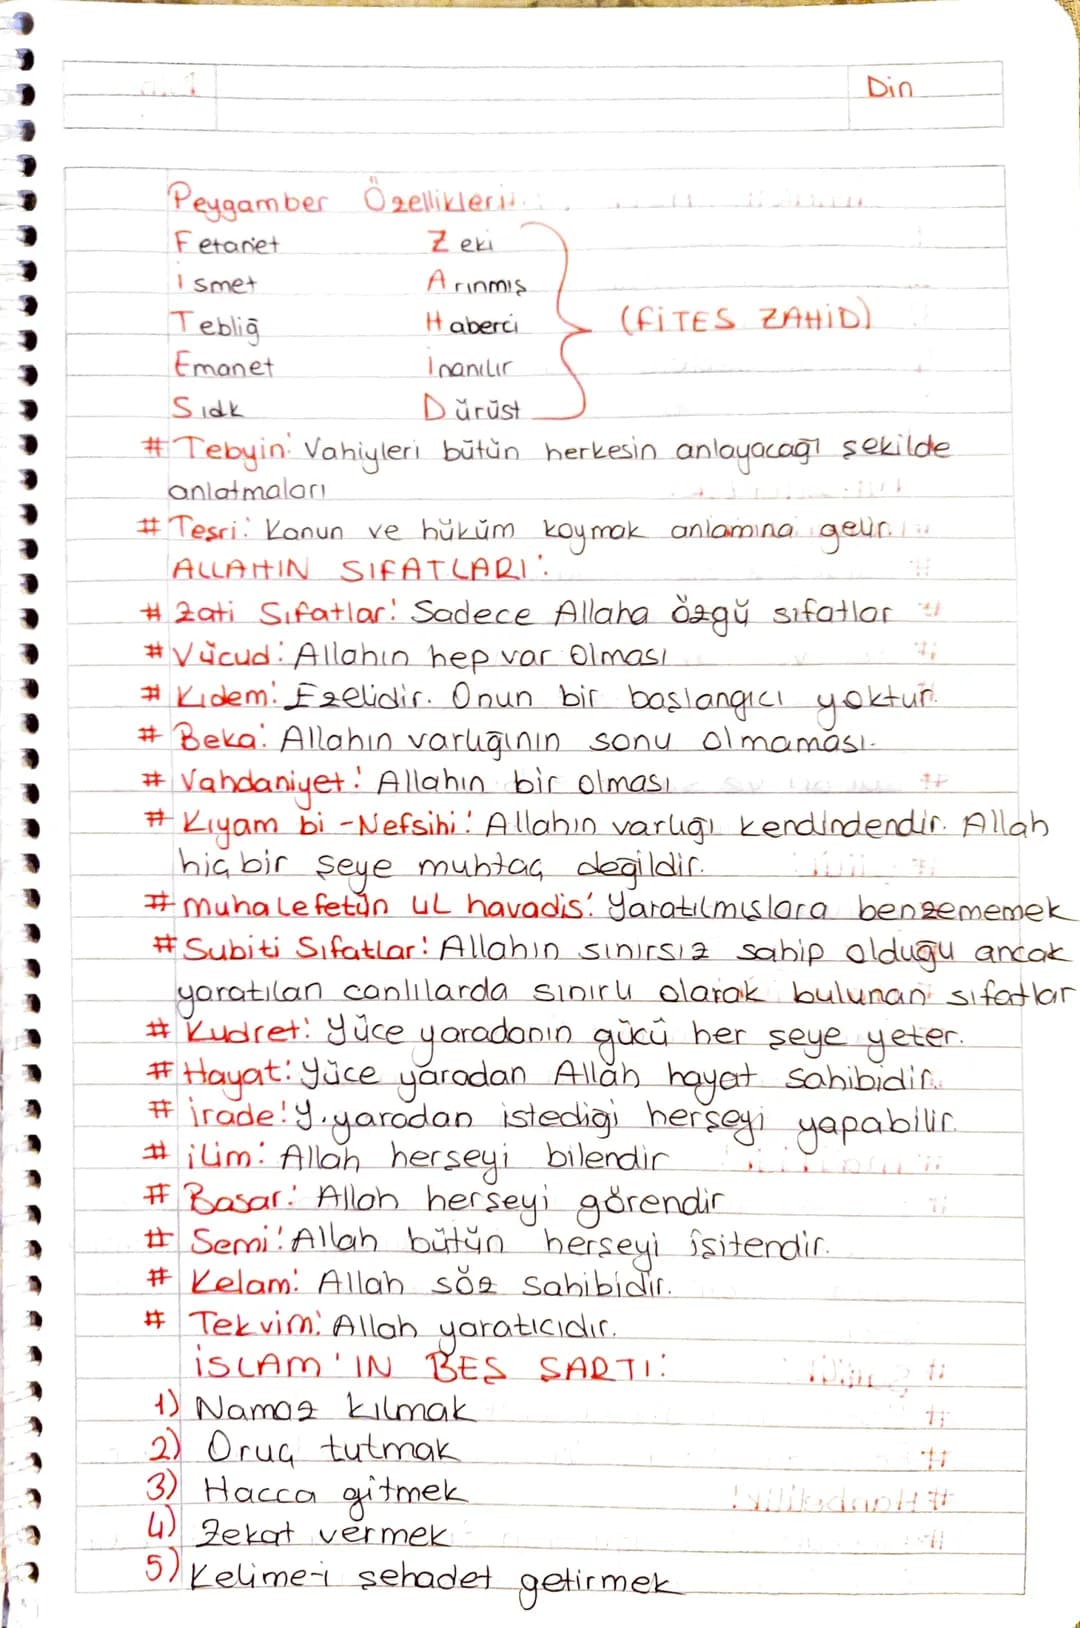 Din
Peygamber Özellikleri:
Fetanet Zeki
İsmet Arınmış
Tebliğ Haberci (FİTES ZAHİD)
Emanet İnanılır
Sıdk Dürüst
# Tebyin: Vahiyleri bütün herkesin anlayacağı şekilde
anlatmaları
# Teşri: Kanun ve hüküm koymak anlamına gelir.
ALLAHIN SIFATLARI:
# Zati Sıfatlar: Sadece Allaha özgü sıfatlar
# Vücud: Allahın hep var olması
# Kıdem: Ezelidir. Onun bir başlangıcı yoktur.
# Beka: Allahın varlığının sonu olmaması.
# Vahdaniyet: Allahın bir olması
# Kıyam bi-Nefsihi: Allahın varlığı kendindendir. Allah
hiç bir şeye muhtaç değildir.
# muhalefetün ul havadis: Yaratılmışlara benzememek
# Subiti Sıfatlar: Allahın sınırsız sahip olduğu ancak
yaratılan canlılarda sınırlı olarak bulunan sıfatlar
# Kudret: Yüce yaradanın gücü her şeye yeter.
# Hayat: Yüce yaradan Allah hayat sahibidir.
# İrade: Y.yaradan istediği herşeyi yapabilir.
# ilim: Allah herşeyi bilendir
# Basar: Allah herşeyi görendir
# Semi: Allah bütün herşeyi işitendir.
# Kelam: Allah söz sahibidir.
# Tekvim: Allah yaratıcıdır.
İSLAM'IN BEŞ ŞARTI:
1) Namaz kılmak
2) Oruç tutmak
3) Hacca gitmek
4) Zekat vermek
5) Kelime-i şehadet getirmek